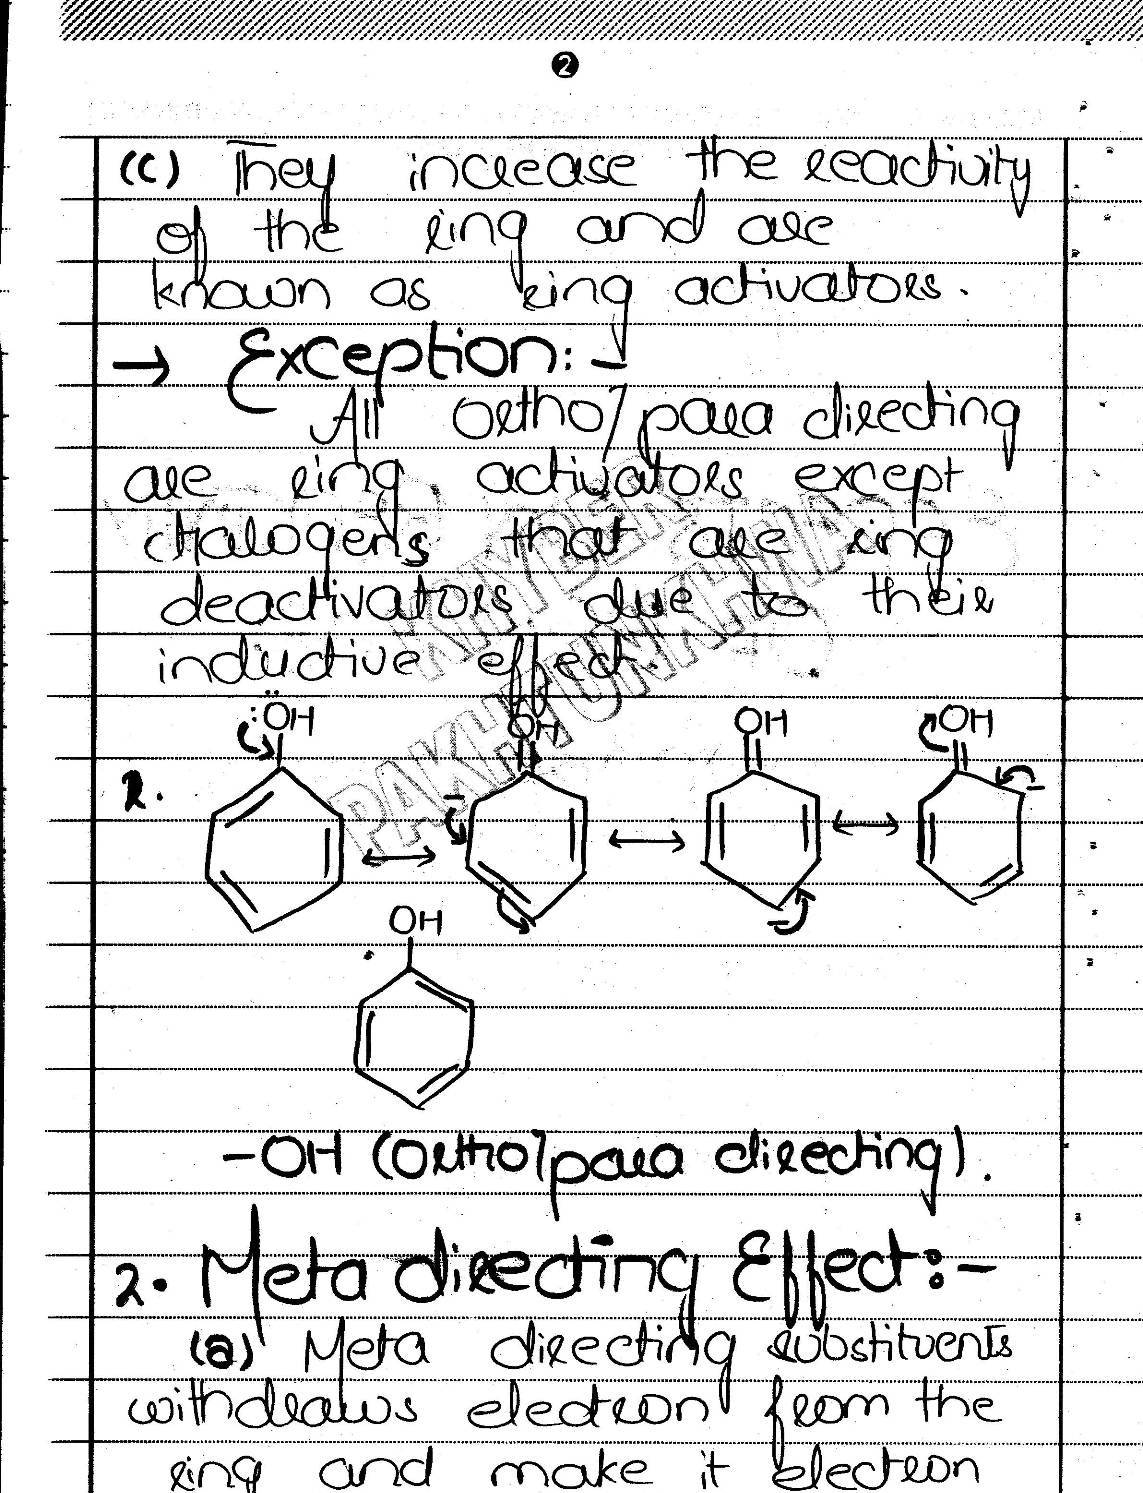 2
(c) They increase the reactivity
of the ring and are
known as ring activators.
→ Exception:-
All Ortho/para directing
are ring activators except
Halogens that are ring
deactivators due to their
inductive effect.
KHYBER
PAKHTUNKHWA
:ÖH
OH
OH
OH
1.
OH
-OH (Ortho/para directing).
2. Meta directing Effect:-
(a) Meta directing substituents
withdraws electron from the
ring and make it electron